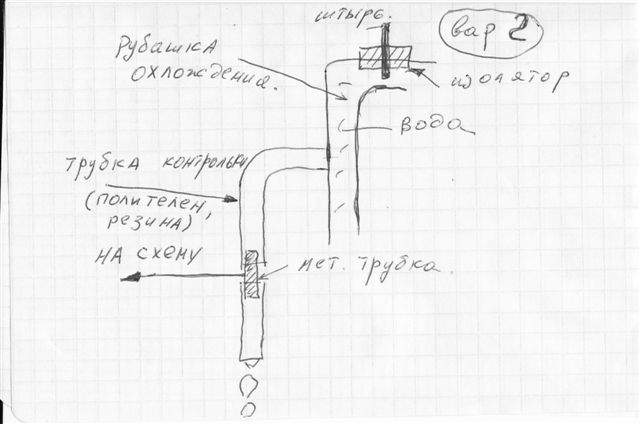 штырь.
вар 2
РУБАШКА
ОХЛОЖДЕНИЯ.
изолятор
ВОДА
ТРУБКА КОНТРОЛЬН
(ПОЛИТЕЛЕН,
РЕЗИНА)
НА СХЕМУ
МЕТ. ТРУБКА.